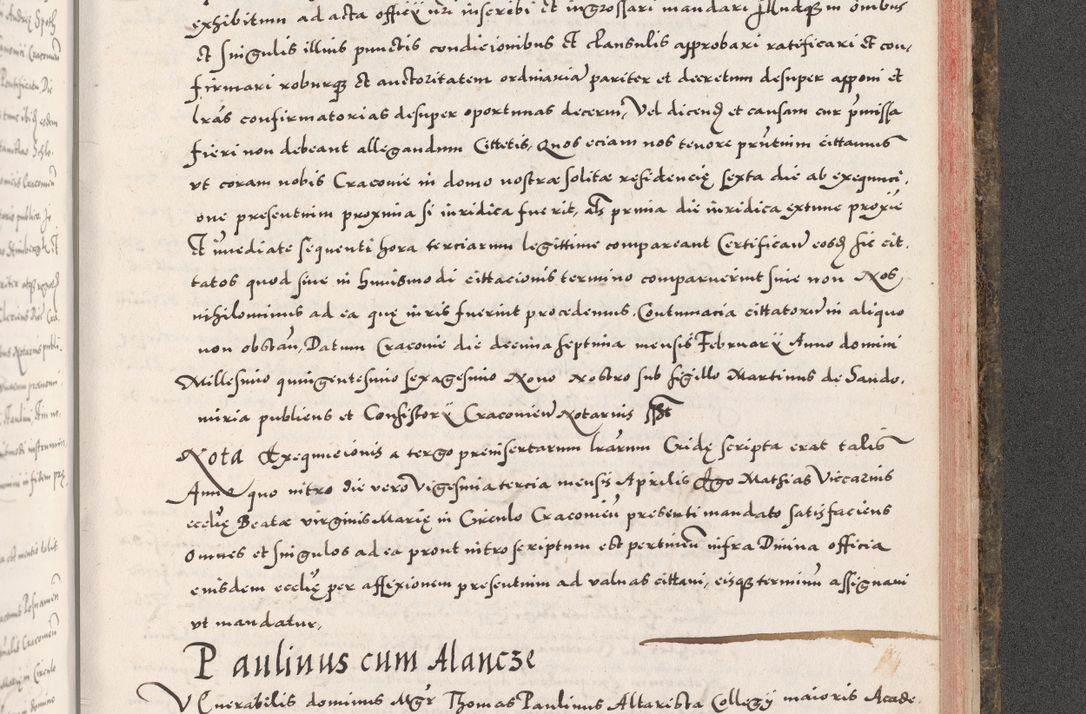 exhibitum ad acta officij nri inscribi et ingrossari mandari Illudq̃ in om̃ibus
et singulis illius punctis condicionibus et clausulis approbari ratificari et con,
firmari roburq̃ et auctoritatem ordinariã pariter et decretum desuper apponi et
lrãs confirmatorias desuper oportunas decerni, Vel dicend et causam cur p̃missa
fieri non debeant allegandum Cittetis, Quos eciam nos tenore pr̃ntium cittamus
vt coram nobis Cracouie in domo nostræ solitæ residencię sexta die ab exequuci,
one presentium proxima si iuridica fuerit, als prima die iuridica extunc proxie
Et ĩmediate sequenti hora terciarum legittime compareant Certificañ eosd sic cit,
tatos quod siue in huiusmodi cittacionis termino comparuerint siue non Nos,
nihilominus ad ea quę iuris fuerint procedemus, Contumacia cittatorũ in aliquo
non obstañ, Datum Cracouie die decima septima mensis Februarij Anno domini
Millesimo quingentesimo sexagesimo Nono Nostro sub sigillo Martinus de Sando,
miria publicus et Consistorij Cracouieñ Notarius sst
Nota Exequucionis a tergo preinsertarum lrarum Cridę scripta erat talis
Anno quo intro die vero vigesima tercia mensis Aprilis Ego Mathias Viccarius
ecclię Beatæ virginis Marię in Circulo Cracouieñ presenti mandato satisfaciens
omnes et singulos ad ea prout intro scriptum est pertineñ infra Diuina officia
eiusdem ecclię per affixionem presentium ad valuas cittaui, eisq̃ terminũ assignaui
vt mandatur,
Paulinus cum Alancze
Venerabilis dominus Mgr Thomas Paulinus Altarista Collegij maioris Acade,